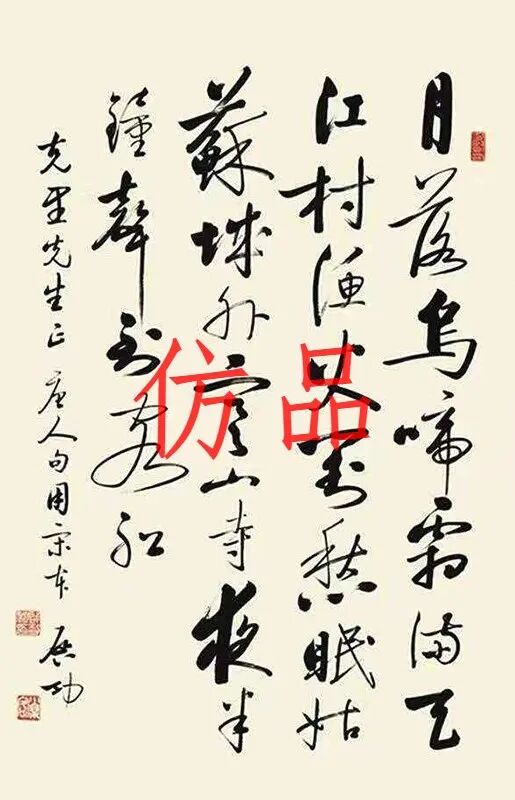 月落烏啼霜滿天
江村漁火對愁眠姑
蘇城外寒山寺夜半
鐘聲到客船
克里先生正 唐人句用宋本 启功
仿品